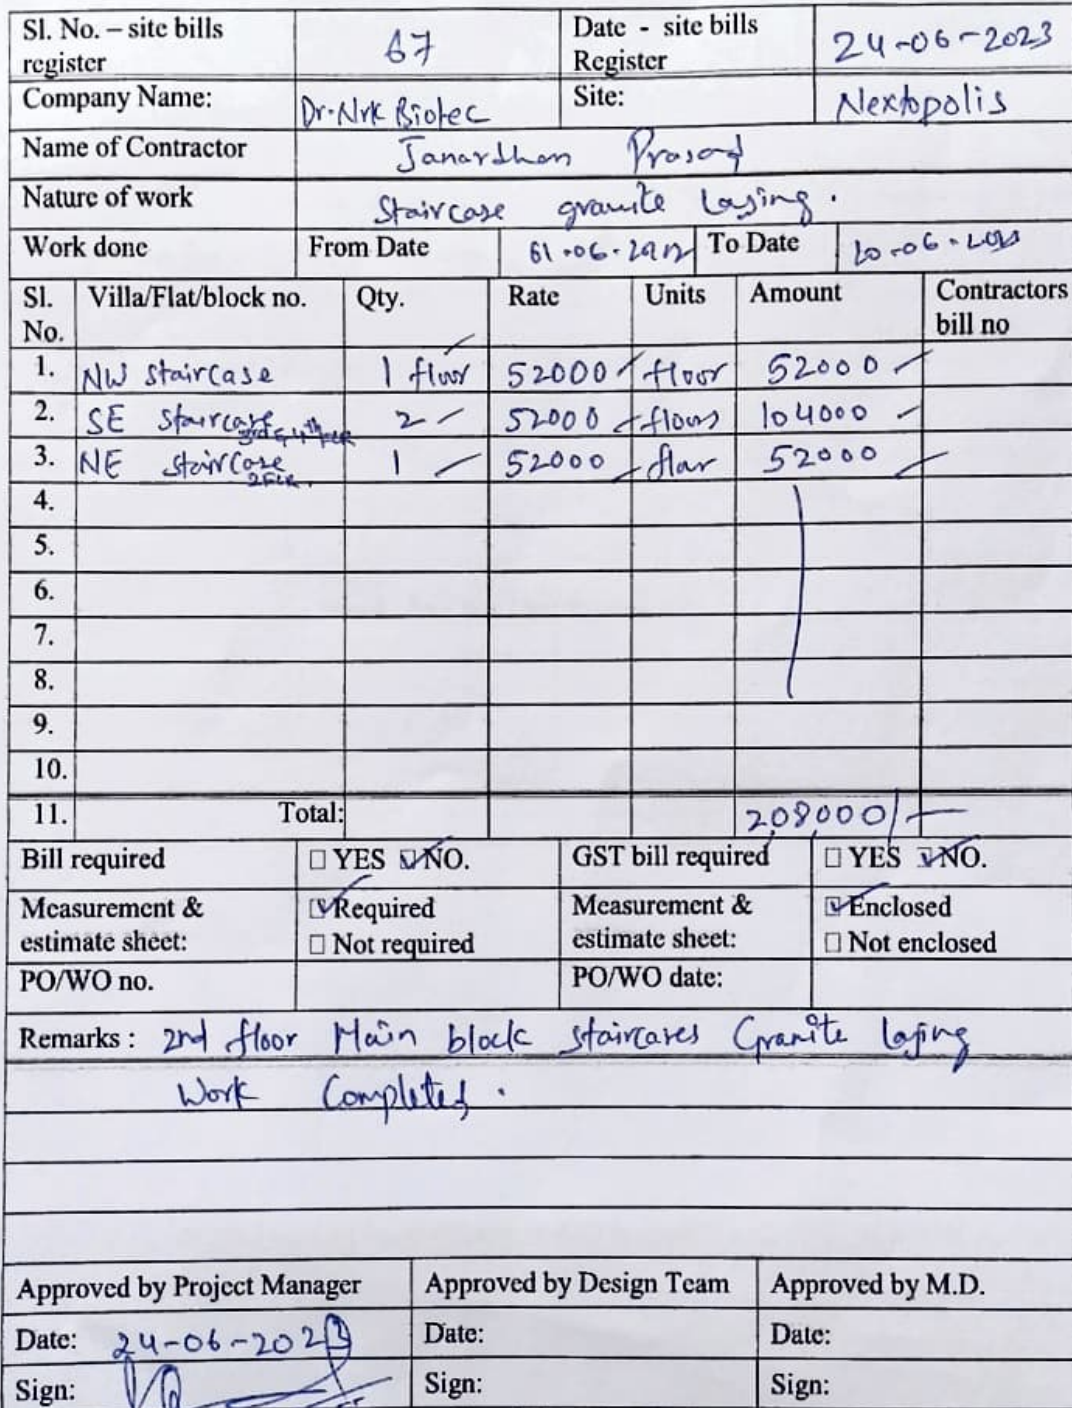 Sl. No. – site bills register 67 Date - site bills Register 24-06-2023
Company Name: Dr. Nrk Biotec Site: Nextopolis
Name of Contractor Janardhan Prasad
Nature of work Staircase granite laying.
Work done From Date To Date 20-06-2023
Sl. No. Villa/Flat/block no. Qty. Rate Units Amount Contractors bill no
1. NW staircase 1 floor 52000 floor 52000
2. SE staircase 3rd & 4th FLR 2 52000 floors 104000
3. NE staircase 2 FLR. 1 52000 floor 52000
4.
5.
6.
7.
8.
9.
10.
11. Total: 2,08,000/-
Bill required □ YES ☑ NO. GST bill required □ YES ☑ NO.
Measurement & estimate sheet: ☑ Required Measurement & estimate sheet: ☑ Enclosed
□ Not required □ Not enclosed
PO/WO no. PO/WO date:
Remarks : 2nd floor Main block staircases Granite laying
Work Completed.
Approved by Project Manager Approved by Design Team Approved by M.D.
Date: 24-06-2023 Date: Date:
Sign: Sign: Sign: